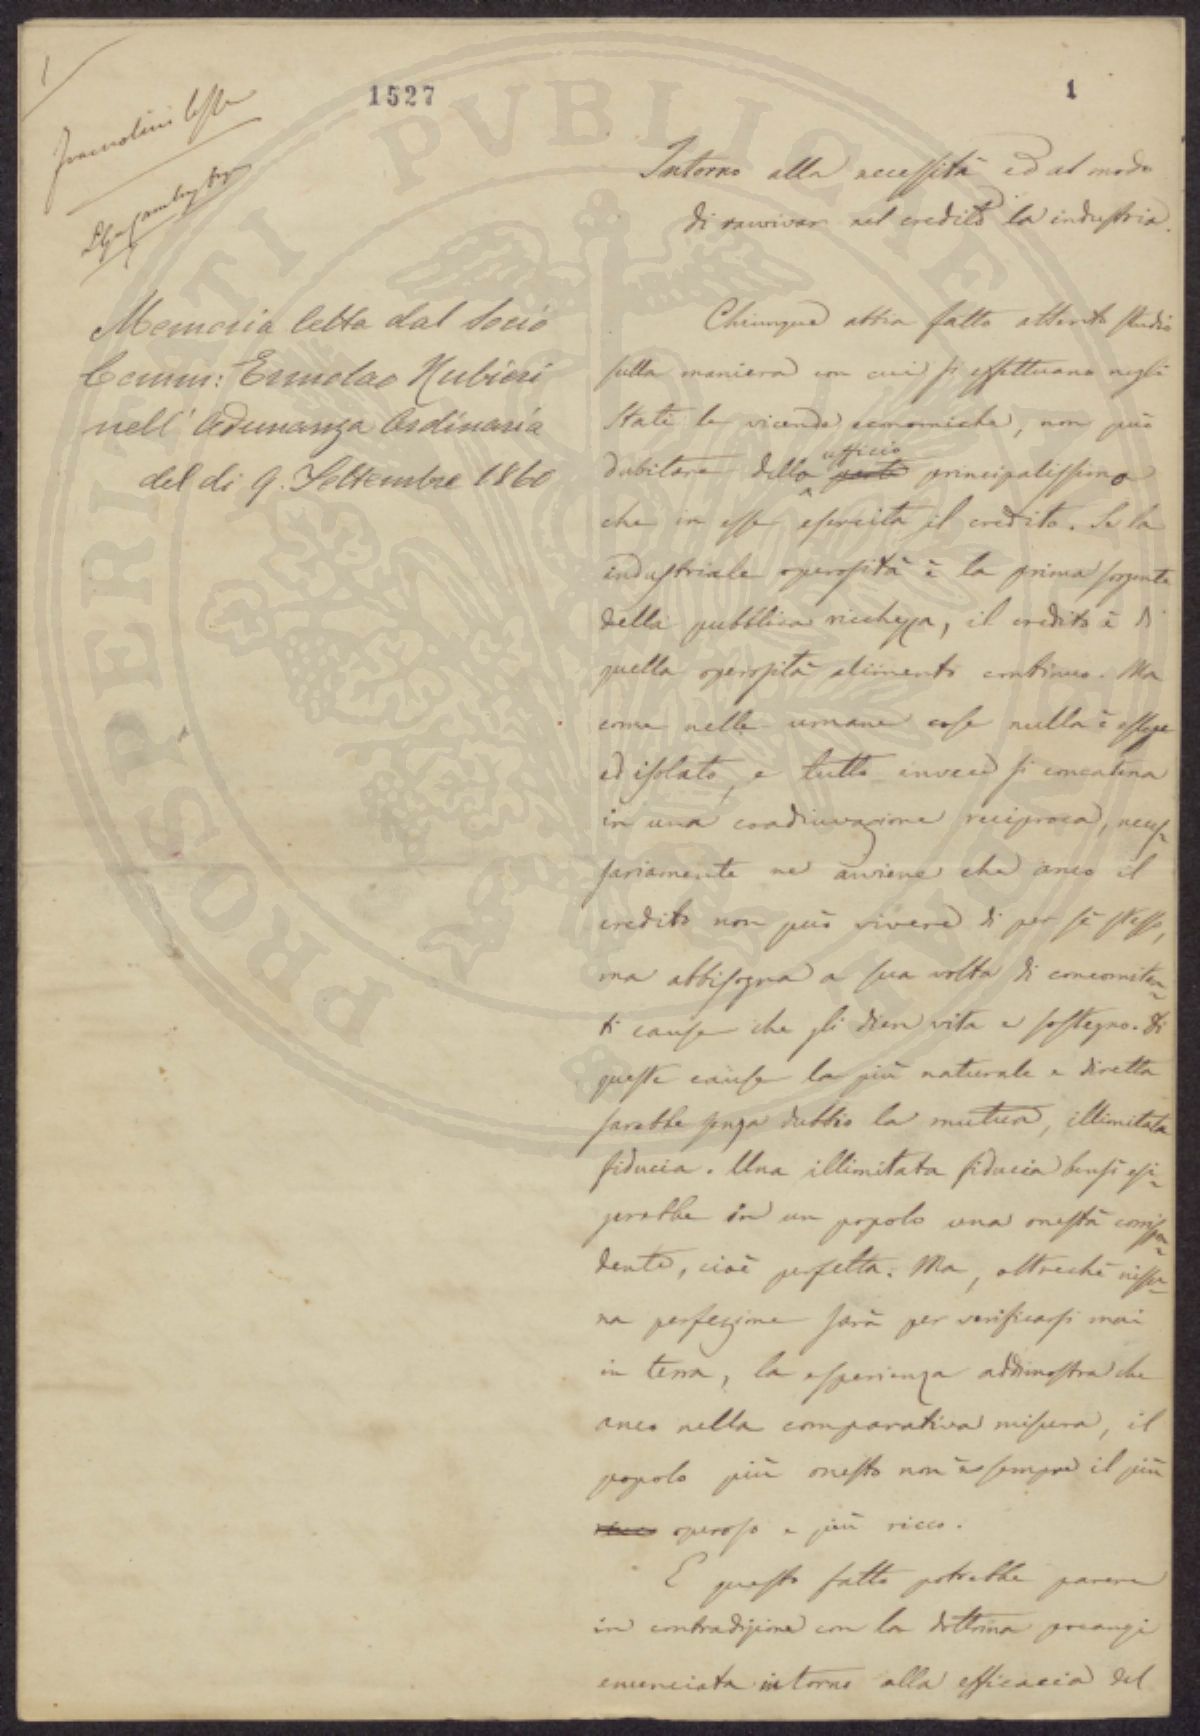 1527
1
Intorno alla necessità ed al modo
di ravvivar nel credito la industria.
Memoria letta dal Socio
Comm: Ermolao Rubieri
nell' Adunanza Ordinaria
del dì 9. Settembre 1860
Chiunque abbia fatto attento studio
sulla maniera con cui si effettuano negli
Stati le vicende economiche, non può
ufficio
dubitare dello parte principalissimo
che in esse esercita il credito. Se la
industriale operosità è la prima sorgente
della pubblica ricchezza, il credito è di
quella operosità alimento continuo. Ma
come nelle umane cose nulla è
ed isolato, e tutto invece si concatena
in una coadiuvazione reciproca, neces-
sariamente ne avviene che anco il
credito non può vivere di per sè stesso,
ma abbisogna a sua volta di concomitan-
ti cause che gli dien vita e sostegno. Di
queste cause la più naturale e diretta
sarebbe senza dubbio la mutua, illimitata
fiducia. Una illimitata fiducia bensì esi-
gerebbe in un popolo una onestà corrispon-
dente, cioè perfetta. Ma, oltrechè nissu-
na perfezione sarà per verificarsi mai
in terra, la esperienza addimostra che
anco nella comparativa misura, il
popolo più onesto non è sempre il più
ricco operoso e più ricco.
E questo fatto potrebbe parere
in contradizione con la dottrina pocanzi
enunciata intorno alla efficacia del
PROSPERITATI PVBLICAE